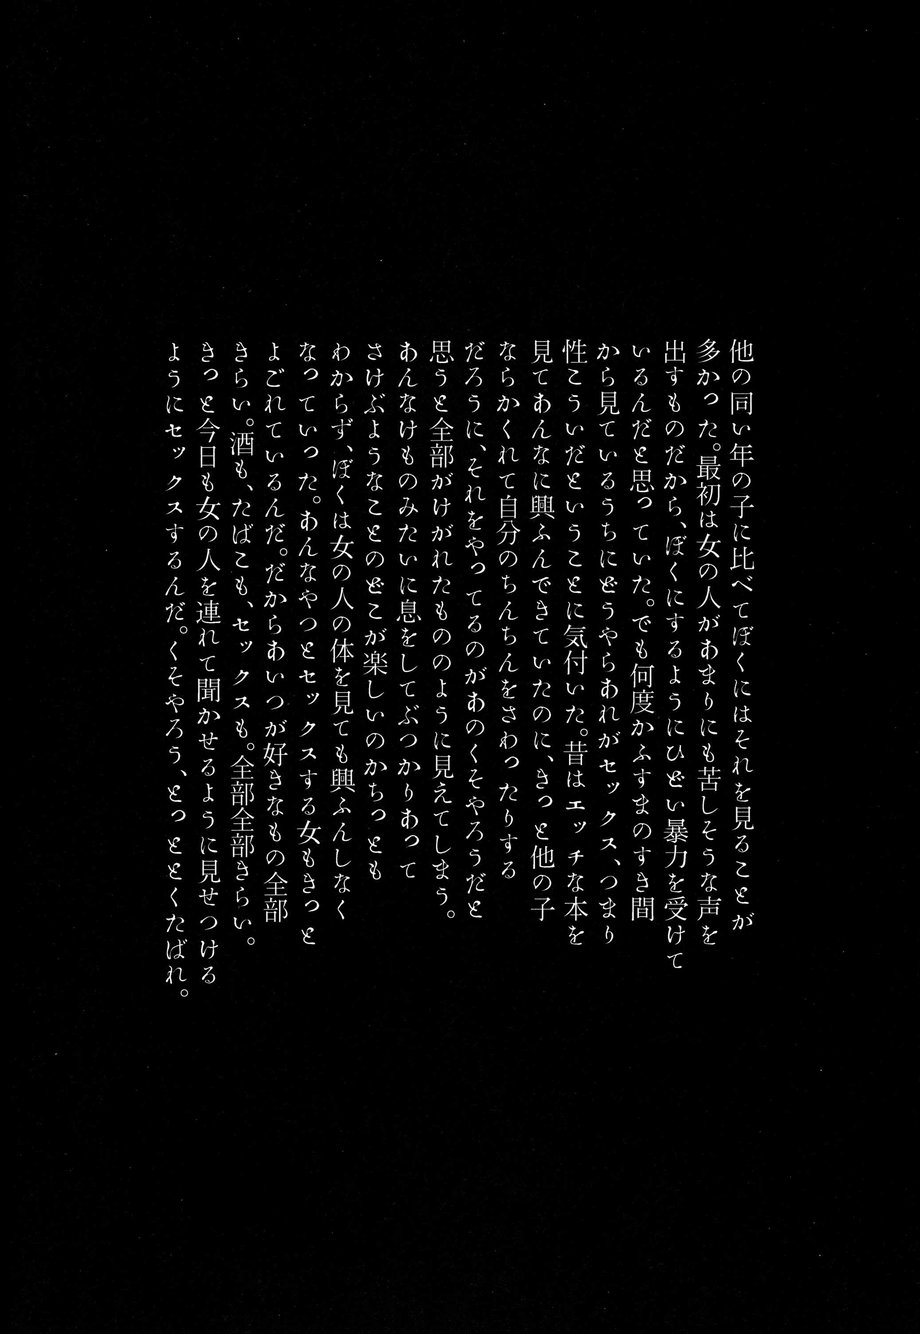 他の同い年の子に比べてぼくにはそれを見ることが
多かった。最初は女の人があまりにも苦しそうな声を
出すものだから、ぼくにするようにひどい暴力を受けて
いるんだと思っていた。でも何度かふすまのすき間
から見ているうちにどうやらあれがセックス、つまり
性こういだということに気付いた。昔はエッチな本を
見てあんなに興ふんできていたのに、きっと他の子
ならかくれて自分のちんちんをさわったりする
だろうに、それをやってるのがあのくそやろうだと
思うと全部がけがれたもののように見えてしまう。
あんなけものみたいに息をしてぶつかりあって
さけぶようなことのどこが楽しいのかちっとも
わからず、ぼくは女の人の体を見ても興ふんしなく
なっていった。あんなやつとセックスする女もきっと
よごれているんだ。だからあいつが好きなもの全部
きらい。酒も、たばこも、セックスも。全部全部きらい。
きっと今日も女の人を連れて聞かせるように見せつける
ようにセックスするんだ。くそやろう、とっととくたばれ。